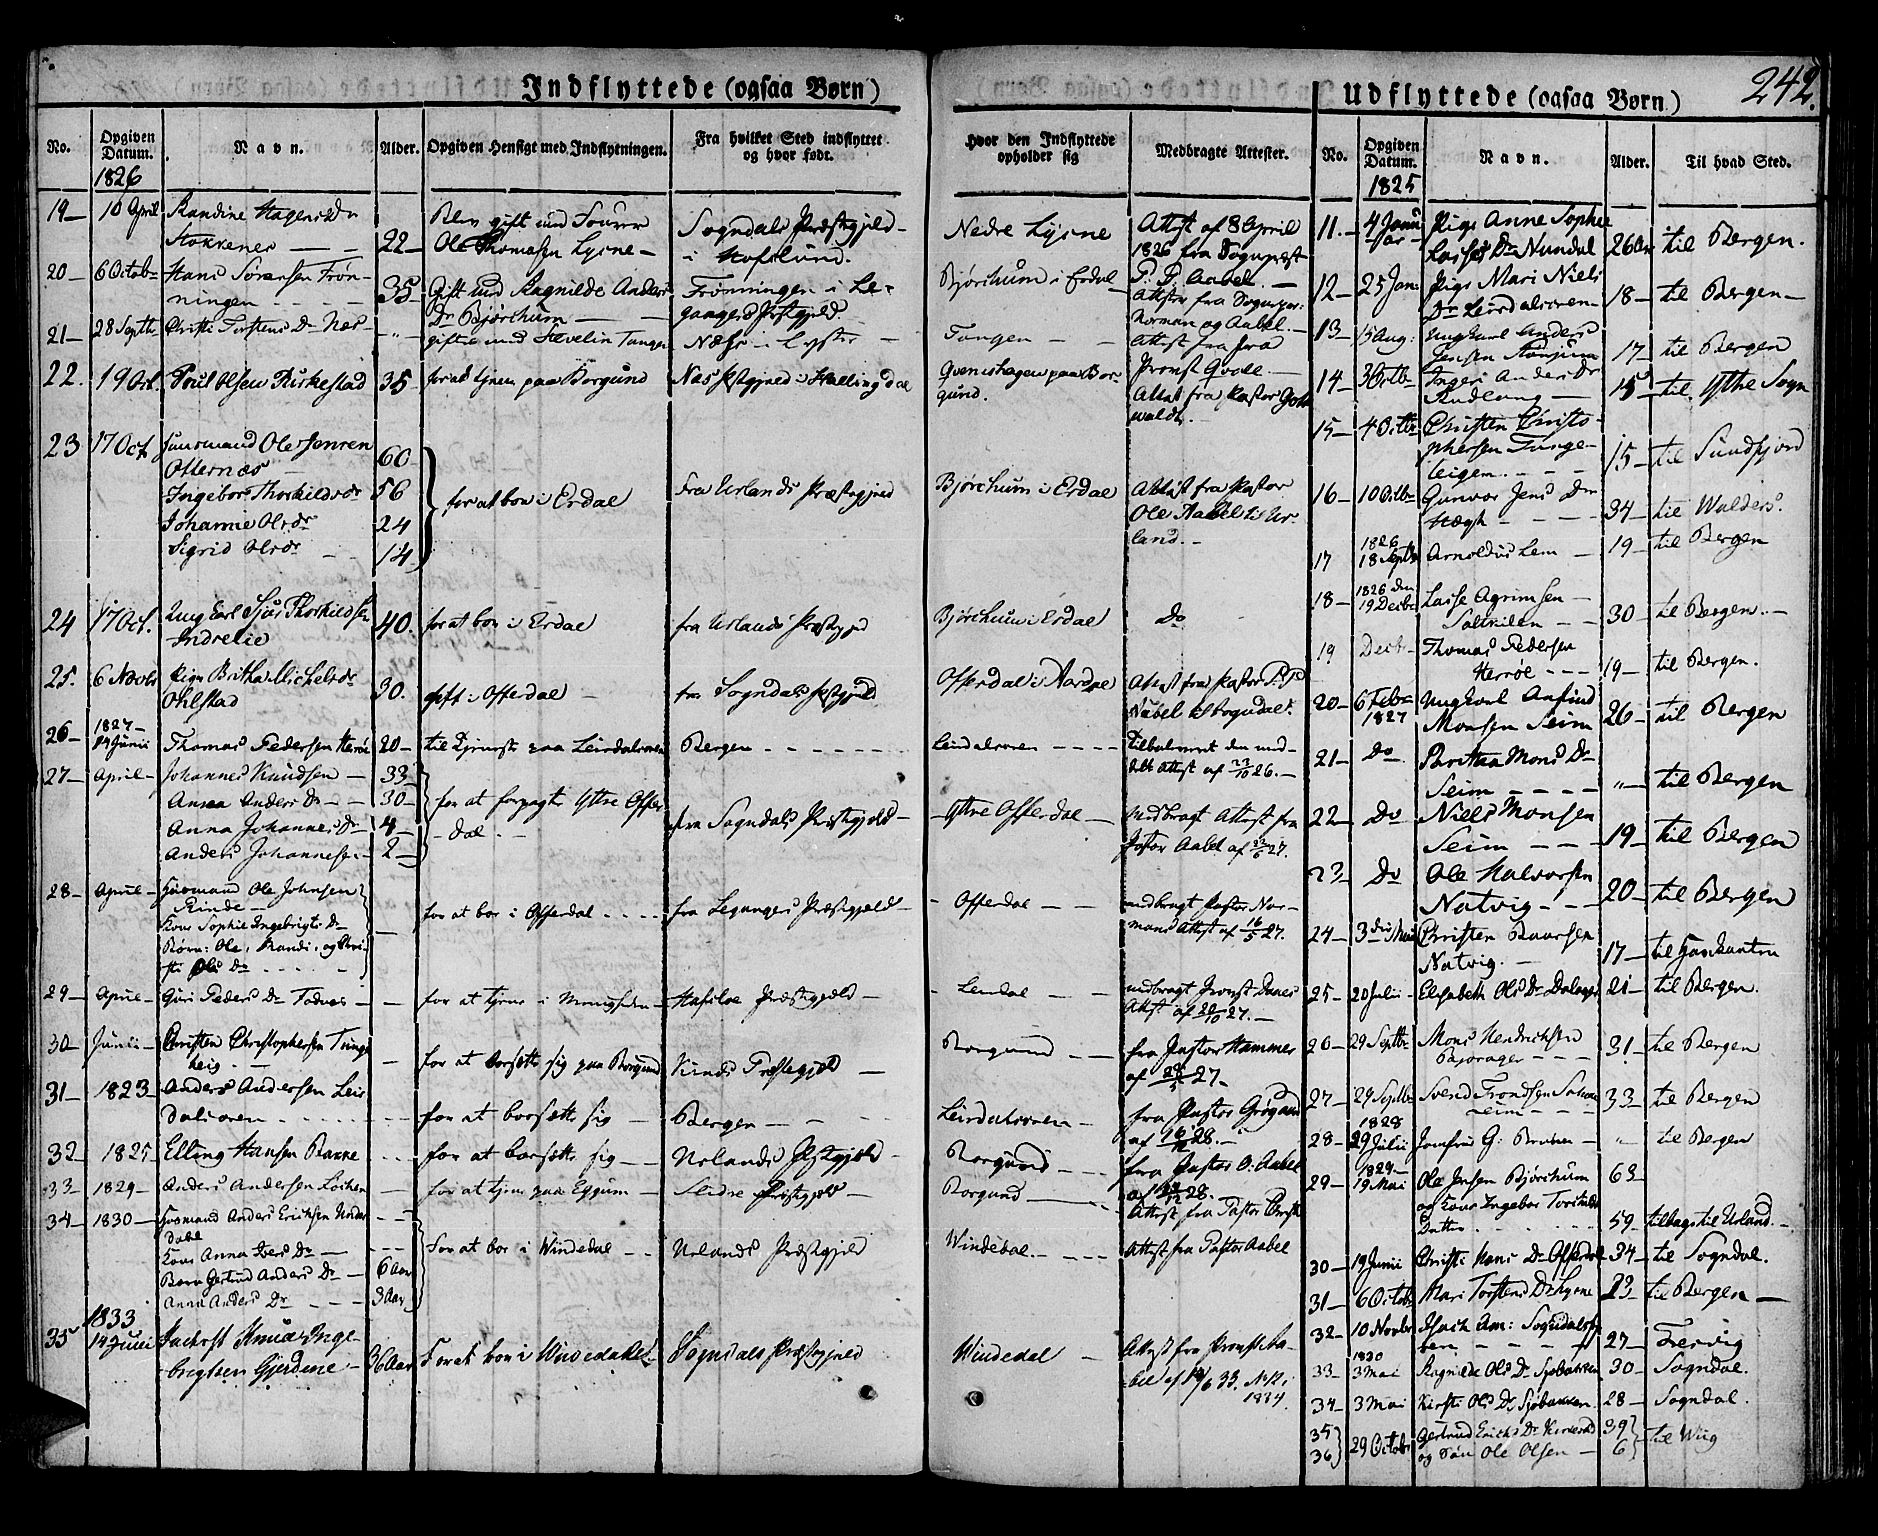 242.
Indflyttede (ogsaa Børn)
No. Opgiven Datum. Navn. Alder. Opgiven Hensigt med Indflytningen. Fra hvilket Sted indflyttet og hvor født. Hvor den Indflyttede opholder sig Medbragte Attester.
1826
19 — 10 April Randine Hagensdr
Stokkenes — — 22 — Blev gift med
Ole Thomasen Lysne — Sogndals Præstegjeld — i Hofslund. Nedre Lysne Attest af 8 April
1826 fra Sognepræst
P. D. Aabel. —
20 — 6 Octob Hans Sørensen Frøn-
ningen - - - - 35 — Gift med Ragnilde Anders
Dr Bjørchum — Frønningen i Le-
gangers Præstgjeld Bjørchum i Erdal Attester fra Sognepr.
Norman og Aabel. —
21 — 28 Septbr Christi Torstens Dr Næs - " - giftet med Tangen Næss i Lyster — Tangen — — Attest fra
Provst Qvale. —
22. 19 Oct. Poul Olsen Kirkestad 35 — for at tjene paa Borgund Næs Præstgjeld i Hallingdal Qvemshagen paa Bor-
gund. Attest fra Pastor
23 17 Oct Huusmand Ole Jensen
Otternæs — 60
Ingebor Thorkildsdr 56
Johanne Olsdr 24
Sigrid Olsdr - - 14
for at boe i Erdal Fra Urlands Præstegjeld Bjørchum i Erdal Attest fra Pastor
Ole Aabel til Ur-
land. —
24 17 Oct. Ung Karl Sjur Thorkildsen
Indrelie 40. for at boe i Erdal fra Urlands Præstgjeld Bjørchum i Erdal Do
25. 6 Novbr Pige Britha Michelsdr
Ohlstad 30. gift i Offerdal — fra Sogndals Præstgjeld Offerdal i Aardal Attest fra Pastor
Aabel til Sogndal.
1827 —
26 — 14 Junii Thomas Pedersen Herøe 20 — til Tjeneste paa Leirdalsøren Bergen - - - - Leirdalsøren - - - - Tilbaleveret den med-
delt Attest af 23/10 26. —
27 — April — Johannes Knudsen — 33
Anna Anders Dr — — 30 —
Anna Johannes Dr — 4 —
Anders Johannesen — 2 —
for at forpagte Ytre Offer-
dal. — fra Sogndals Præstgjeld — Ytre Offerdal — medbragt Attest fra
Pastor Aabel af 22/6 27.
28 — April — Huusmand Ole Johnsen
Rinde —
Kone Sophie Ingebrigts Dr
Børn: Ole, Randi, og Chri-
sti Ols Dr - - - -
for at boe i Offerdal - - - - fra Legangers Præstgjeld — Offerdal — — medbragt Pastor Nor-
mans Attest af 16/5 27.
29 — April — Guri Peders Dr — — for at tjene i Hafsloe Præstgjeld — Leirdal — — medbragt Provst
Attest af 20/10 27. —
30 — Junii — Christen Christophersen Tunge
teig. — — for at bosætte sig paa Borgund Præstegjeld — Borgund — — fra Pastor Hammer
af 28/5 27 —
31 — 1823 — Anders Andersen Leir
dalsøren - - - - for at bosætte sig — Bergen — — Leirdalsøren — fra Pastor
af 16/12 28. —
32 — 1825 Elling Hansen - - - for at bosætte sig — Urlands Præstgjeld — Borgund — - - fra Pastor O. Aabel
33 — 1829 — Anders Andersen - - - for at tjene paa Eggum — Slidre Præstgjeld — Borgund — - - Attest fra Pastor
34 — 1830 — Huusmand Anders Erichsen
dahl
Kone Anna Dr — - - -
Børn Gertrud Anders Dr — 6 Aar
Anna Anders Dr — - - 3 Aar
for at boe i Windedal - - Urlands Præstgjeld Windedal. — - - - Attest fra Pastor Aabel
1833
35 14 Juni Knud Inge-
brigtsen Gjerdene — 36 Aar For at boe i Windedalet Sogndals Præstgjeld Windedal — Attest fra Provst
af 14/6 33.
1834
Udflyttede (ogsaa Børn)
No. Opgiven Datum. Navn. Alder. Til hvad Sted.
1825
11. — 4 Janu
ar — Pige Anne Sophie
Lasses Dr Nundal 26 Aar til Bergen.
12 — 25 Jan. Pige Mari Niels
Dr Leirdalsøren — 18 — til Bergen —
13 — 15 Aug: Ung Karl Anders
Jensen 17 — til Bergen
14 — 3 Octbr Inger Anders Dr
— 15 — til Ytre Sogn
15 — 4 Octbr Christen Christo-
phersen Tunge-
teigen. - - - - 15 — til Sundfjord
16 — 10 Octbr Gunvor Jens Dr
Hægh — — — 34 — til Walders.
1826
17 18 Septbr Arnoldus Lem — 19 — til Bergen
1826 den
18 — 19 Decbr Lasse Agrimsen —
— — 30 — til Bergen. —
19 Decb — Thomas Pedersen
Herrøe - - - 19 — til Bergen.
20 — 6 Febr
1827 Ung Karl Anfind
Monsen Seim 26 — til Bergen
21 — Do Mons Dr
Seim - - - - " — til Bergen
22 — Do Niels Monsen
Seim - - - 19 — til Bergen
23 — Do Ole Halvorsen
Natvig — - - 20 — til Bergen
24 — 3 Christen
Natvig. — 17 — til
25 — 20 Julii — Elisabeth Ols Dr 21 — til Bergen.
26 — 29 Septbr Mons Hendrichsen
- - - 31 — til Bergen
27 — 29 Septbr Svend Trondsen
- - - 33 — til Bergen
1828
28 — 29 Julii Jomfrue G: — " — til Bergen
1829 —
29 — 19 Mai Ole Jensen Bjørchum 63 —
og Kone Ingebor Torkilds
Datter - - - - 59 — tilbage til Urland. —
30 — 19 Junii Christi Hans Dr Offerdal 34 — til Sogndal.
31 — 6 Octob Mari Torstens Dr Lysne 23 — til Bergen —
32 — 10 Novbr Isach Am:
— — — 27 —
1830
33 — 3 Mai Ragnilde Ols Dr Sjøbakken 30 — Sogndal
34 — 3 Mai Kirsti Ols Dr Sjøbakken. 28 — Sogndal.
35
36 29 Octobr Gertrud Erichs Dr 39
og Søn Ole Olsen — 6 til Wiig